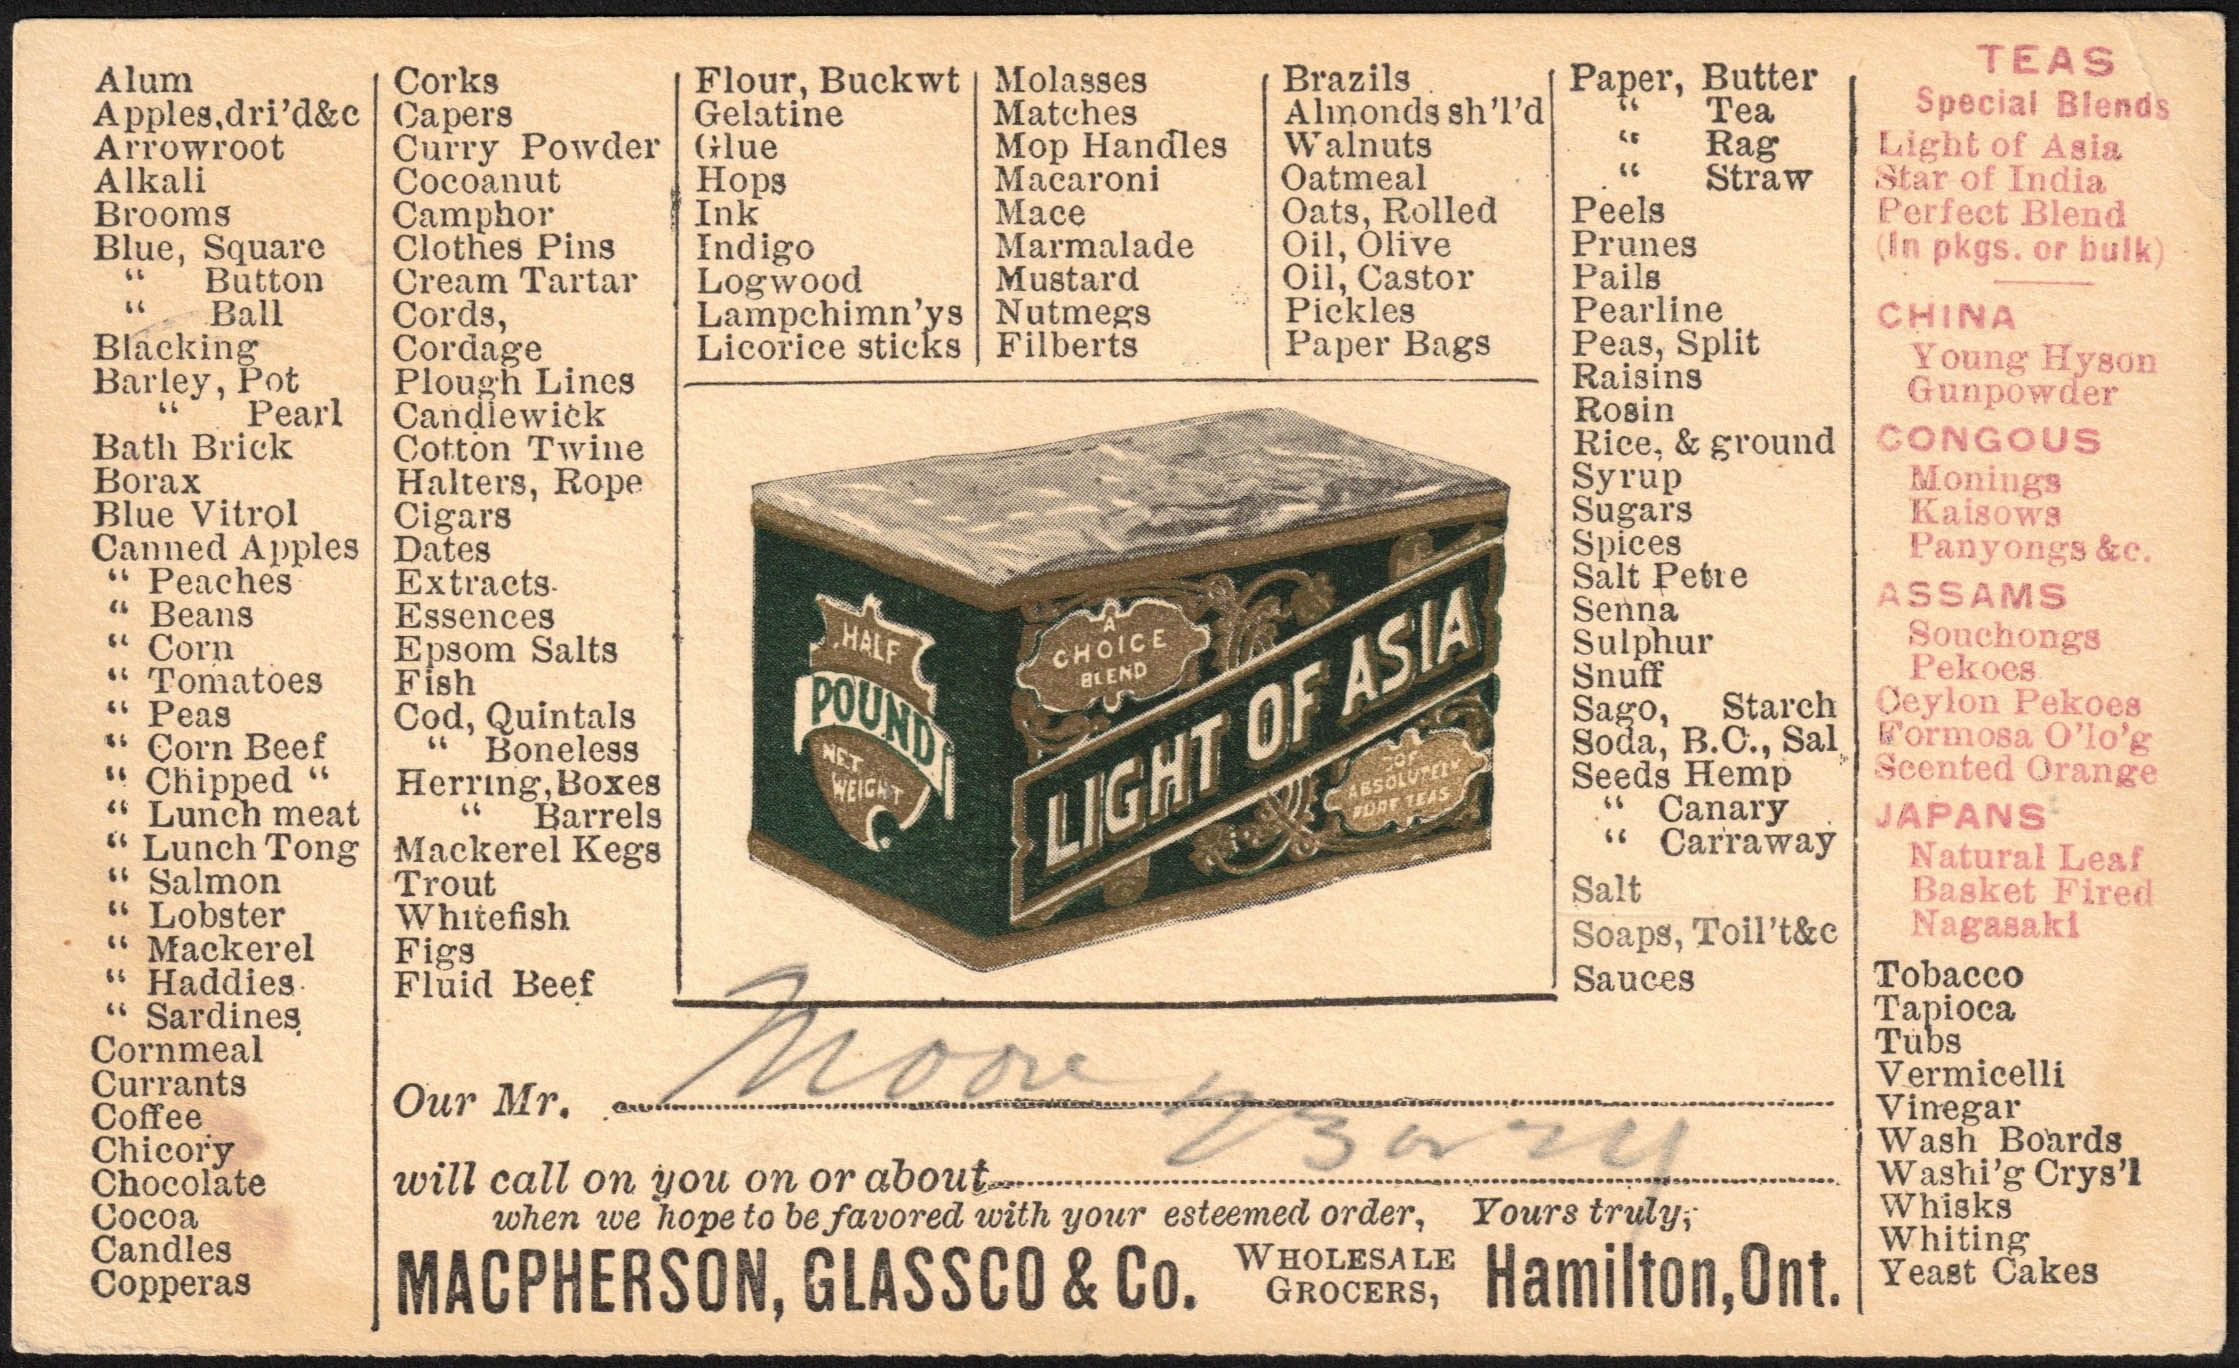 Alum
Apples,dri'd&c
Arrowroot
Alkali
Brooms
Blue, Square
“ Button
“ Ball
Blacking
Barley, Pot
“ Pearl
Bath Brick
Borax
Blue Vitrol
Canned Apples
“ Peaches
“ Beans
“ Corn
“ Tomatoes
“ Peas
“ Corn Beef
“ Chipped “
“ Lunch meat
“ Lunch Tong
“ Salmon
“ Lobster
“ Mackerel
“ Haddies
“ Sardines
Cornmeal
Currants
Coffee
Chicory
Chocolate
Cocoa
Candles
Copperas
Corks
Capers
Curry Powder
Cocoanut
Camphor
Clothes Pins
Cream Tartar
Cords,
Cordage
Plough Lines
Candlewick
Cotton Twine
Halters, Rope
Cigars
Dates
Extracts
Essences
Epsom Salts
Fish
Cod, Quintals
“ Boneless
Herring, Boxes
“ Barrels
Mackerel Kegs
Trout
Whitefish
Figs
Fluid Beef
Flour, Buckwt
Gelatine
Glue
Hops
Ink
Indigo
Logwood
Lampchimn'ys
Licorice sticks
Molasses
Matches
Mop Handles
Macaroni
Mace
Marmalade
Mustard
Nutmegs
Filberts
Brazils
Almonds sh'l'd
Walnuts
Oatmeal
Oats, Rolled
Oil, Olive
Oil, Castor
Pickles
Paper Bags
HALF
POUND
NET
WEIGHT
A
CHOICE
BLEND
LIGHT OF ASIA
OF
ABSOLUTELY
PURE TEAS
Paper, Butter
“ Tea
“ Rag
“ Straw
Peels
Prunes
Pails
Pearline
Peas, Split
Raisins
Rosin
Rice, & ground
Syrup
Sugars
Spices
Salt Petre
Senna
Sulphur
Snuff
Sago, Starch
Soda, B.C., Sal
Seeds Hemp
“ Canary
“ Carraway
Salt
Soaps, Toil't&c
Sauces
TEAS
Special Blends
Light of Asia
Star of India
Perfect Blend
(In pkgs. or bulk)
CHINA
Young Hyson
Gunpowder
CONGOUS
Monings
Kaisows
Panyongs &c.
ASSAMS
Souchongs
Pekoes
Ceylon Pekoes
Formosa O'lo'g
Scented Orange
JAPANS
Natural Leaf
Basket Fired
Nagasaki
Tobacco
Tapioca
Tubs
Vermicelli
Vinegar
Wash Boards
Washi'g Crys'l
Whisks
Whiting
Yeast Cakes
Our Mr. Moore
will call on you on or about
when we hope to be favored with your esteemed order, Yours truly,
MACPHERSON, GLASSCO & Co. WHOLESALE GROCERS, Hamilton, Ont.